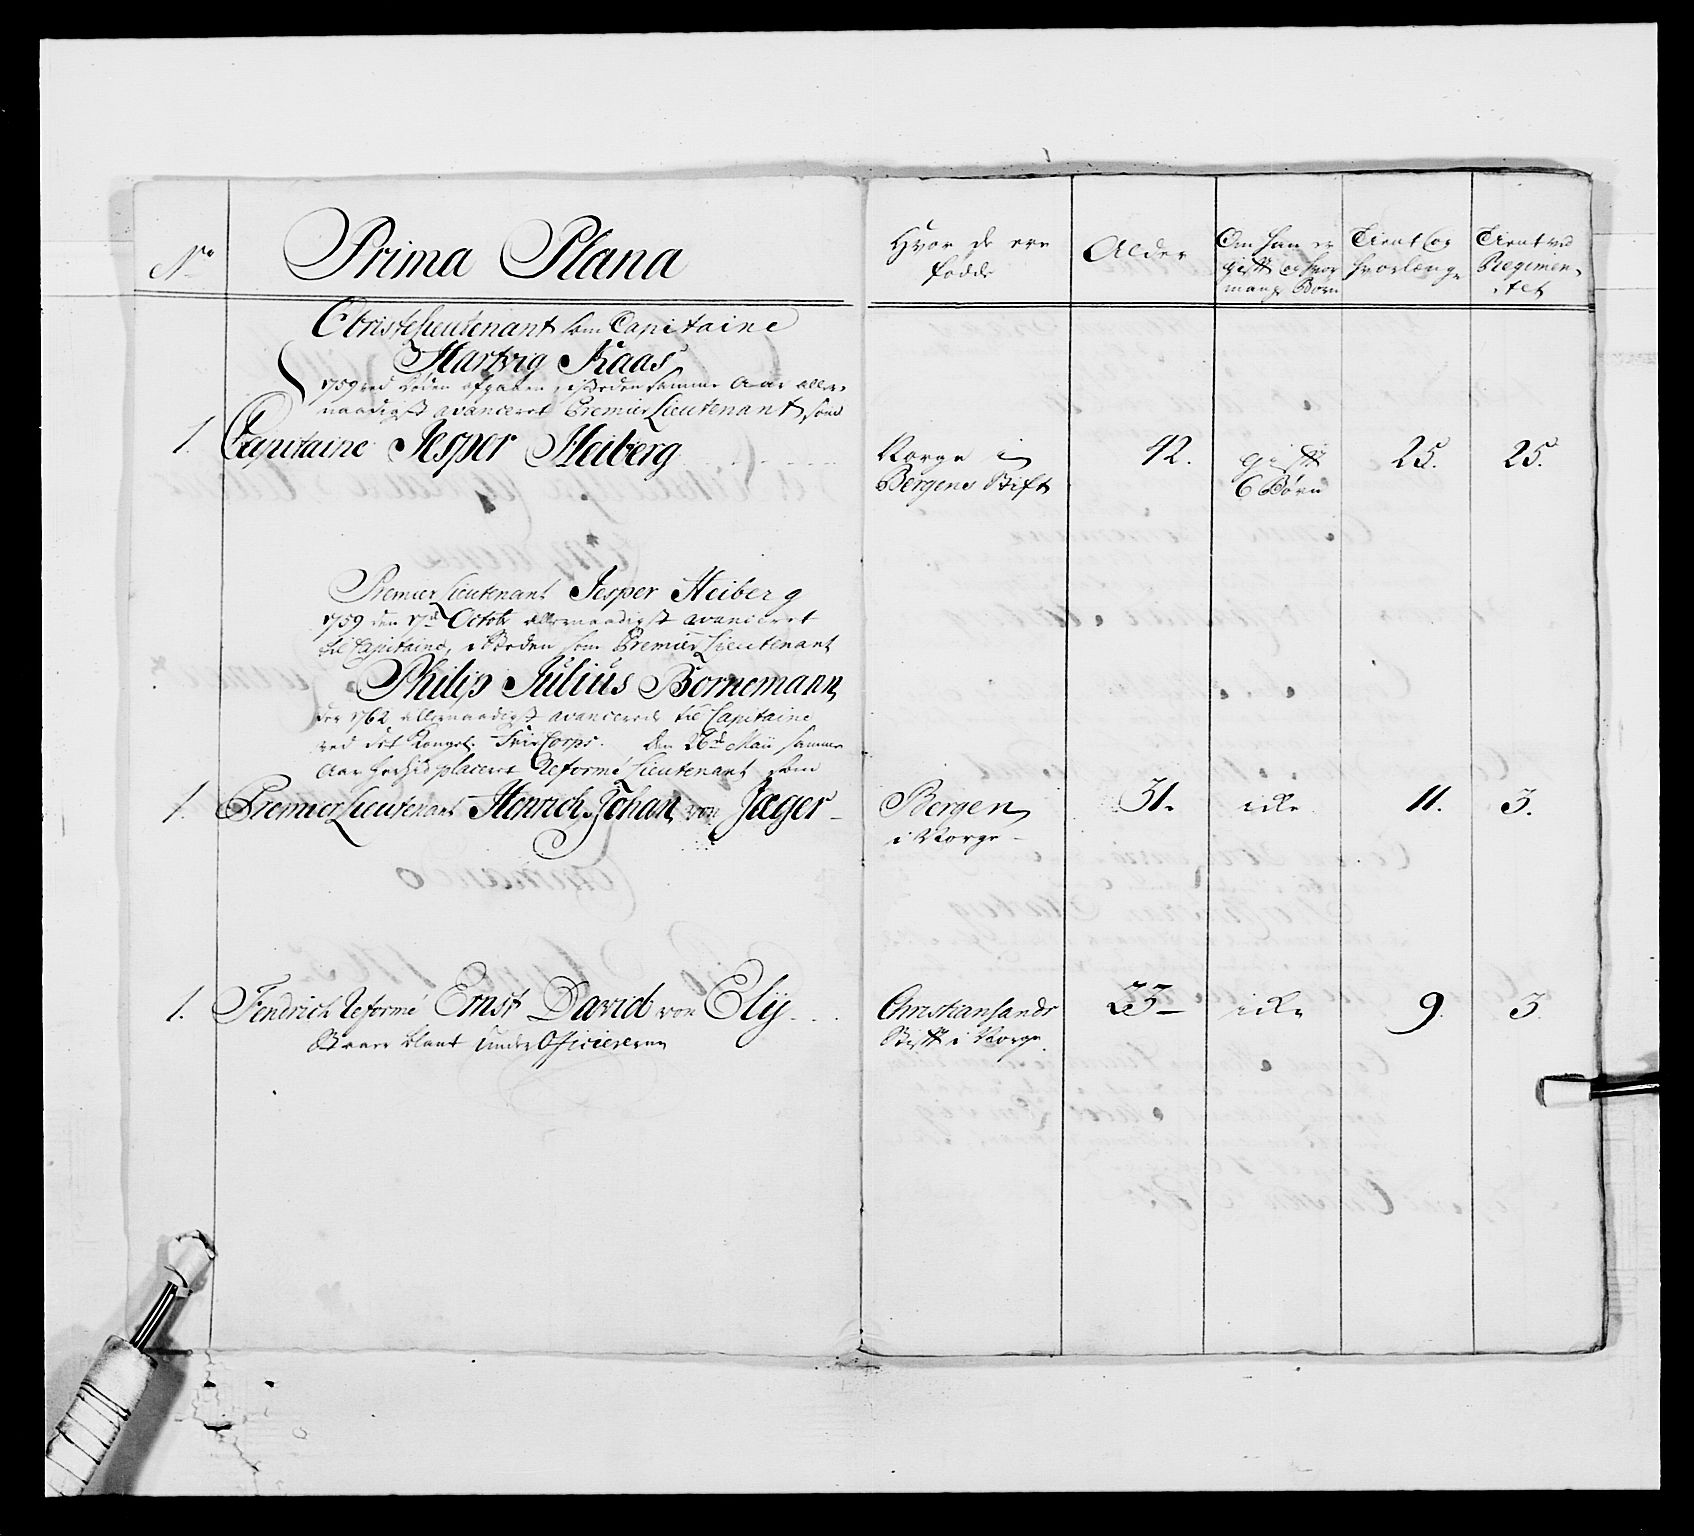 No
Prima Plana
Hvor de ere
fødde
Alder
Om han er
gift og hvor
mange Børn
Tient og
hvorlænge
Tient ved
Regimen-
tet
ObristeLieutenant som Capitaine
Hartvig Kaas
1759 ved Døden afgaben, i Steden samme Aar aller-
naadigst avanceret PremierLieutenant, som
1. Capitaine Jesper Heiberg
Norge i
Bergens Stift
42.
gift
6 Børn
25.
25.
PremierLieutenant Jesper Heiberg
1759 den 17de Octobr allernaadigst avanceret
til Capitaine, i Steden som PremierLieutenant
Philip Julius Bornemann
der 1762 allernaadigst avancerede til Capitaine
ved det Kongel. FriCorps. den 26de Maii samme
Aar herhid placeret Reformé Lieutenant som
1. PremierLieutenant Henrich Johan von Jæger
Bergen
i Norge
31.
icke
11.
3.
1. Fendrich Reformé Ernst David von Elÿ
Christiansands
Stift i Norge
23
icke
9.
3.
Svare blant UnderOfficiererne